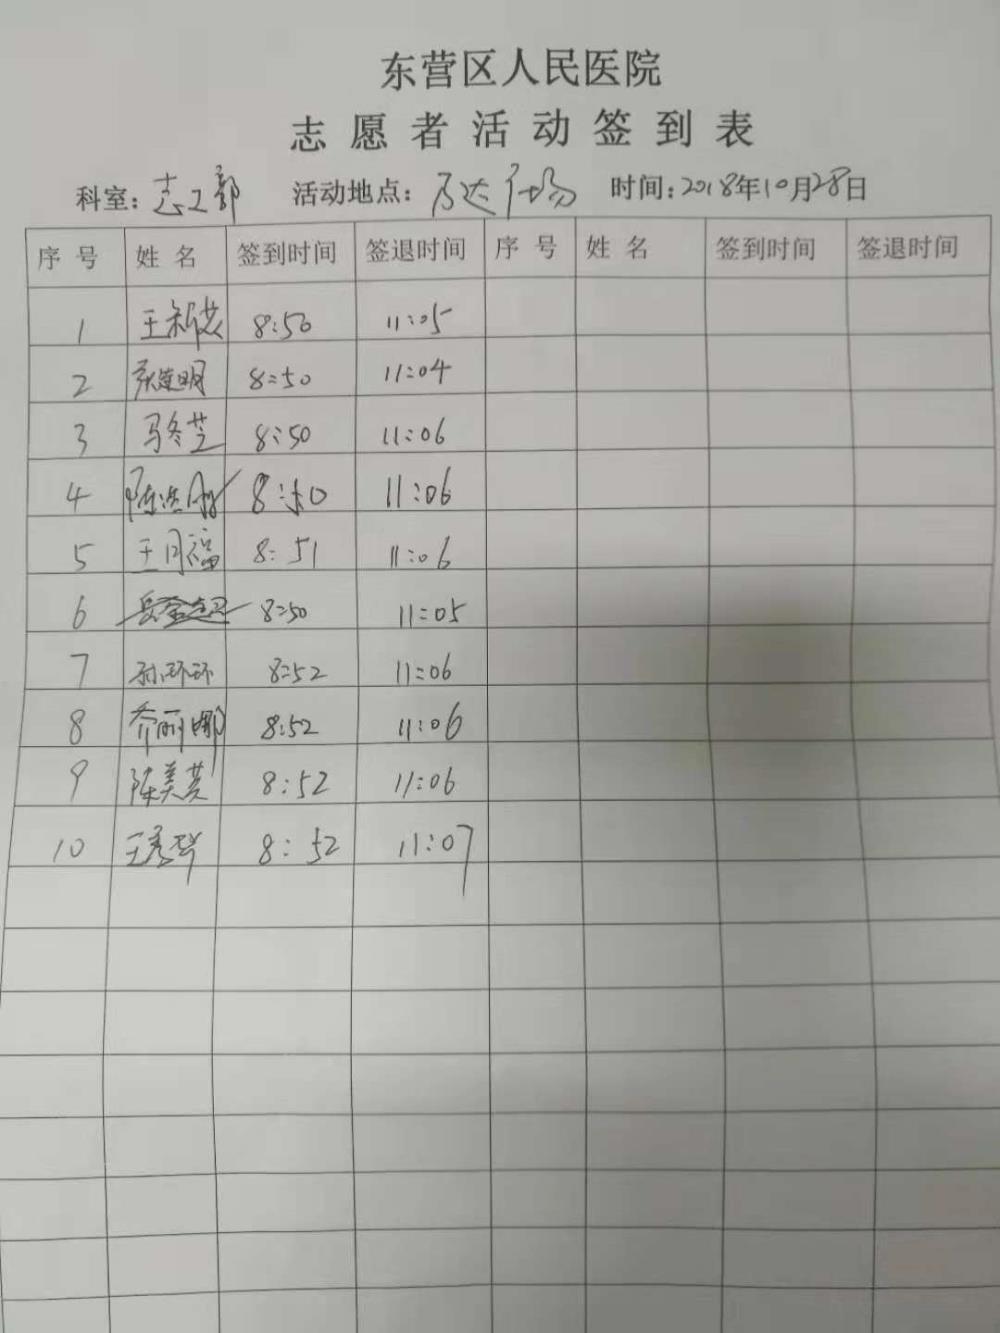 东营区人民医院
志愿者活动签到表
科室：志工部 活动地点：万达广场 时间：2018年10月28日
序号 姓名 签到时间 签退时间 序号 姓名 签到时间 签退时间
1 王新芳 8:50 11:05
2 8:50 11:04
3 马冬芝 8:50 11:06
4 8:50 11:06
5 王月福 8:51 11:06
6 8:50 11:05
7 孙环环 8:52 11:06
8 乔丽娜 8:52 11:06
9 陈美英 8:52 11:06
10 王秀华 8:52 11:07